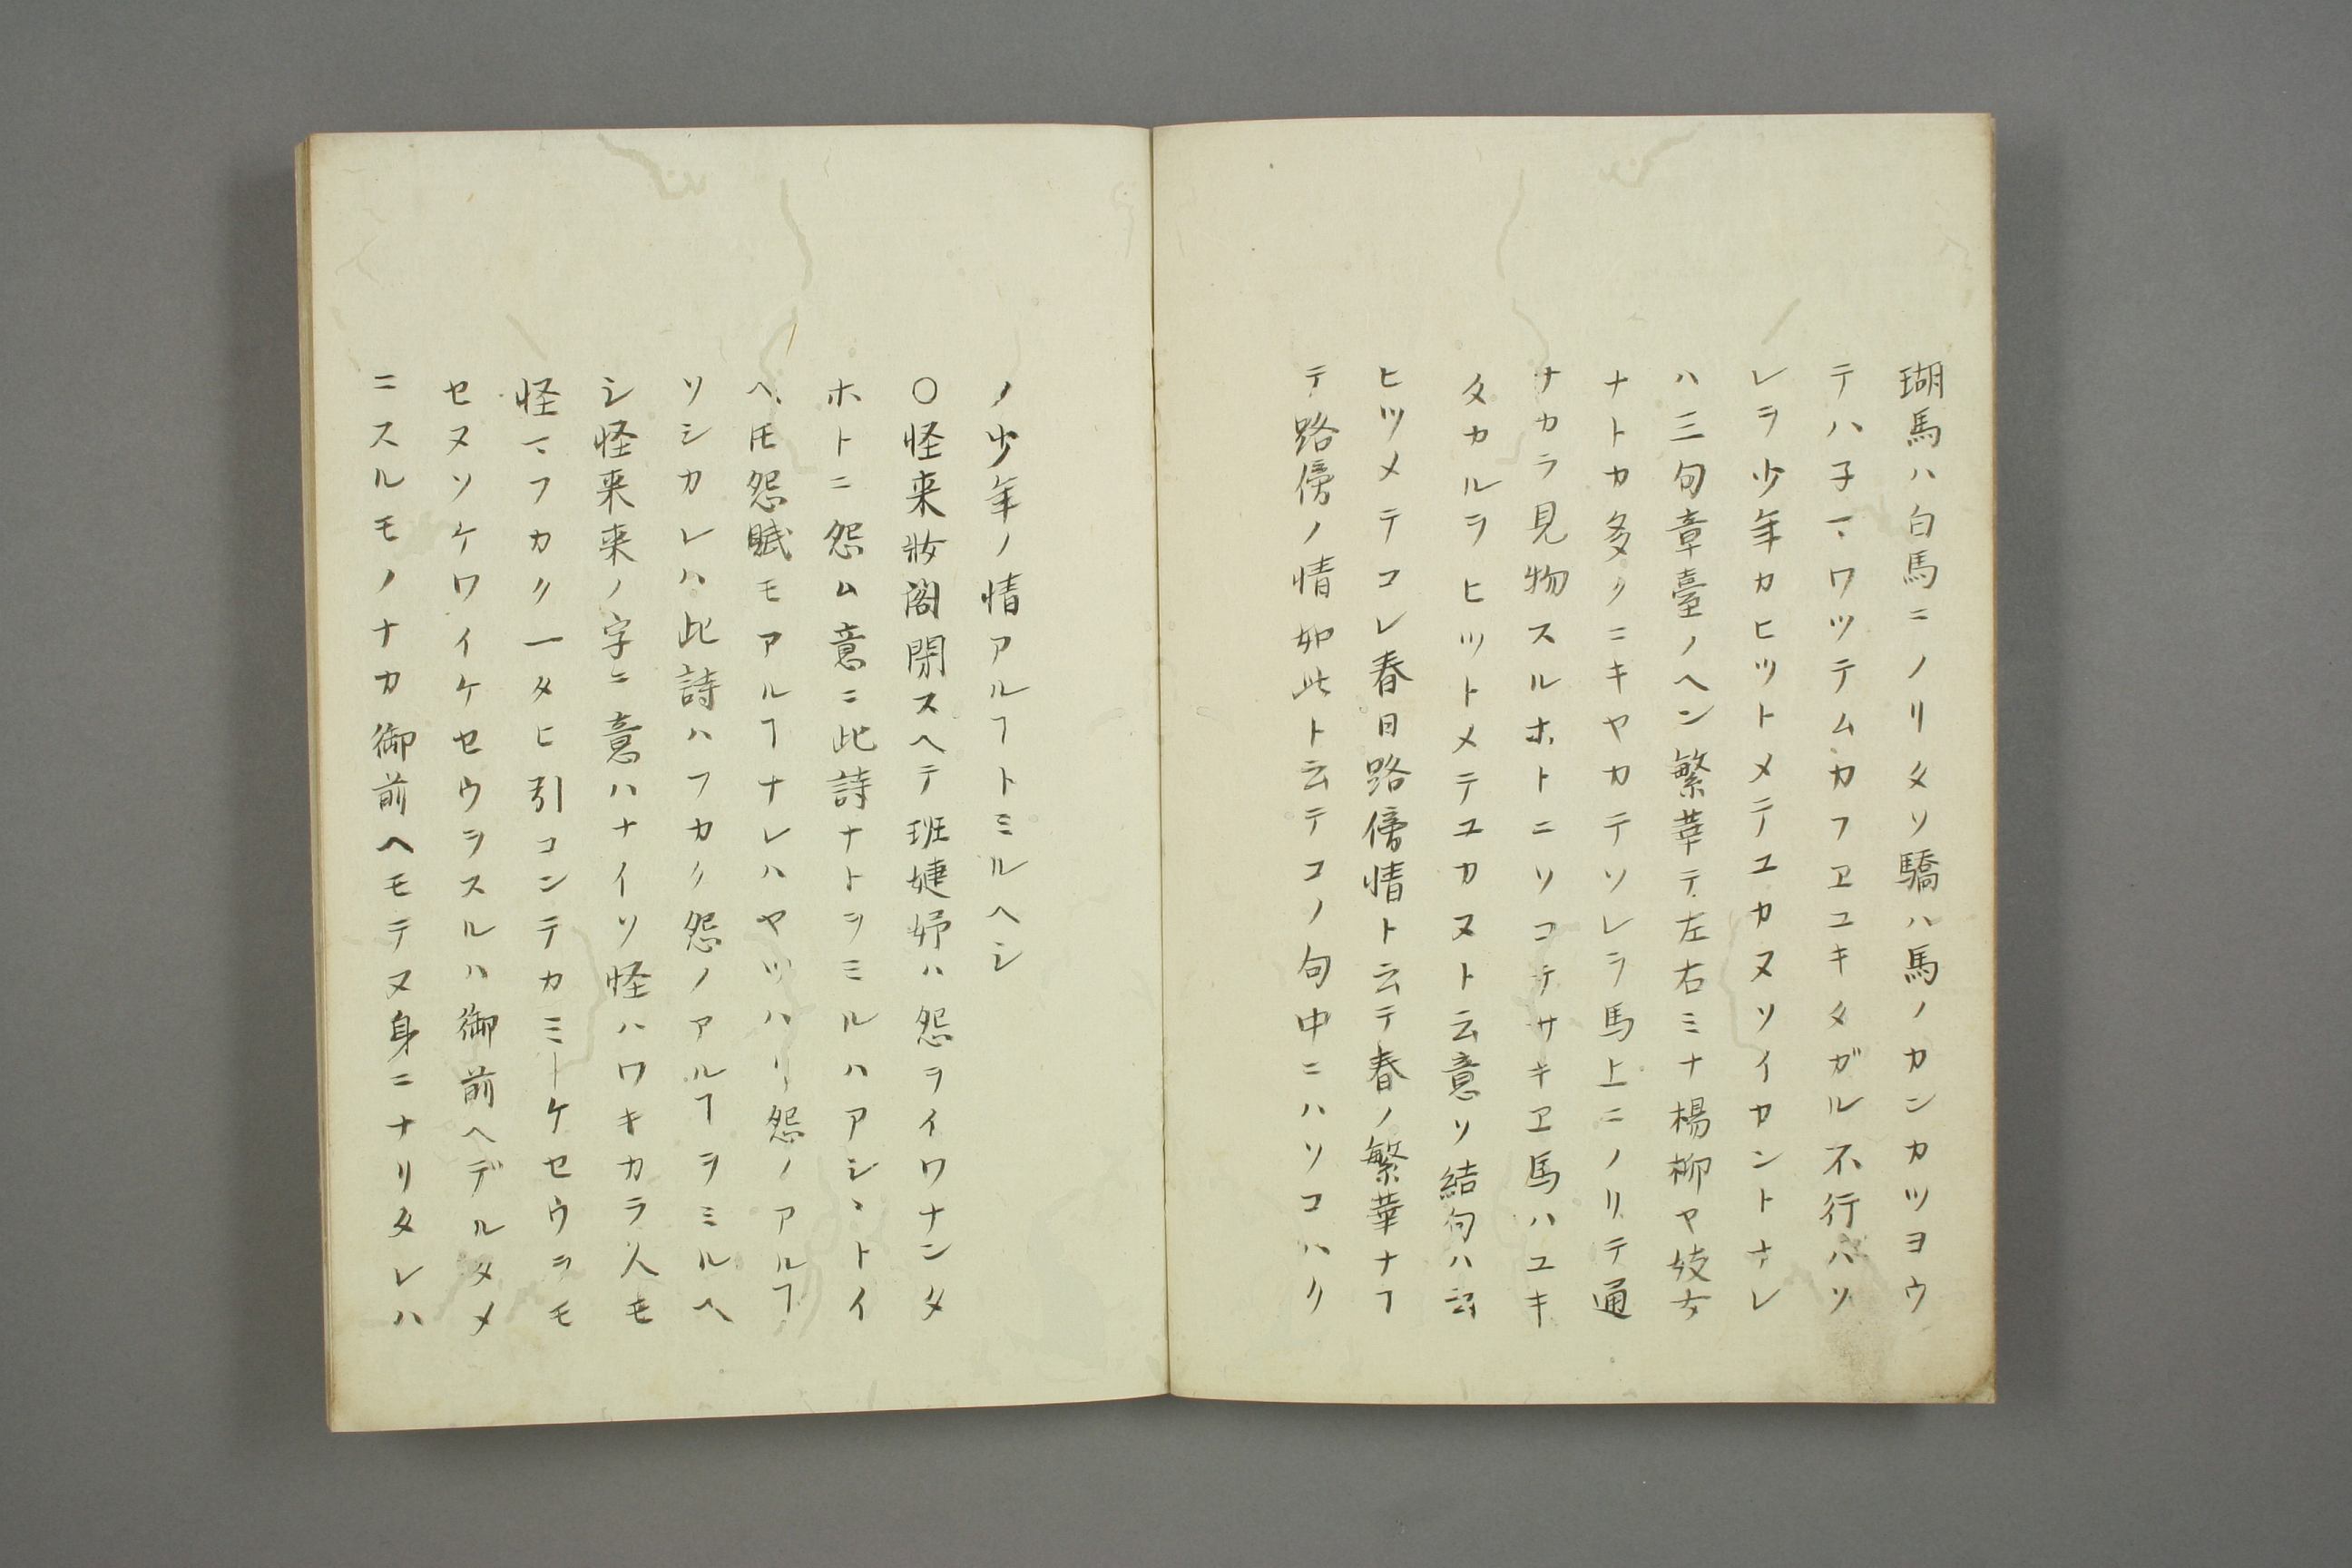 瑚馬ハ白馬ニノリタソ驕ハ馬ノカンカツヨウ
テハ子マワツテムカフヱユキタガル不行ハソ
レヲ少年カヒツトメテユカヌソイカントナレ
ハ三句章臺ノヘン繁華テ左右ミナ楊柳ヤ妓女
ナトカ多クニキヤカテソレラ馬上ニノリテ通
ナカラ見物スルホトニソコテサキヱ馬ハユキ
タカルラヒツトメテユカヌト云意ソ結句ハ云
ヒツメテコレ春日路傍情ト云テ春ノ繁華ナフ
テ路傍ノ情如此ト云テコノ句中ニハソコハク
ノ少年ノ情アルヿトミルヘシ
〇怪来妝閣閉スヘテ班婕妤ハ怨ヲイワナンタ
ホトニ怨ム意ニ此詩ナトヲミルハアシヽトイ
ヘ𪜈怨賦モアルヿナレハヤツハリ怨ノアルヿ
ソシカレハ此詩ハフカク怨ノアルヿヲミルヘ
シ怪来来ノ字ニ意ハナイソ怪ハワキカラ人モ
怪マフカク一タヒ引コンテカミトケセウラモ
セヌソケワイケセウヲスルハ御前ヘデルタメ
ニスルモノナカ御前ヘモテヌ身ニナリタレハ